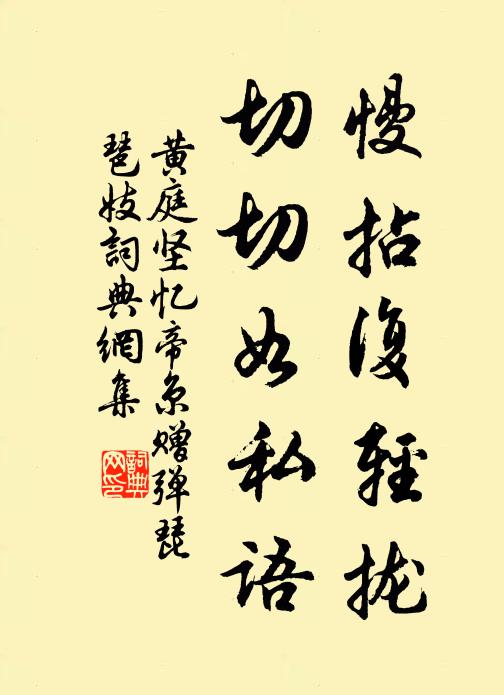 慢拈復輕拢
切切如私語
黄庭坚忆帝京赠弹琵
琶妓詞典網集
詞典网印